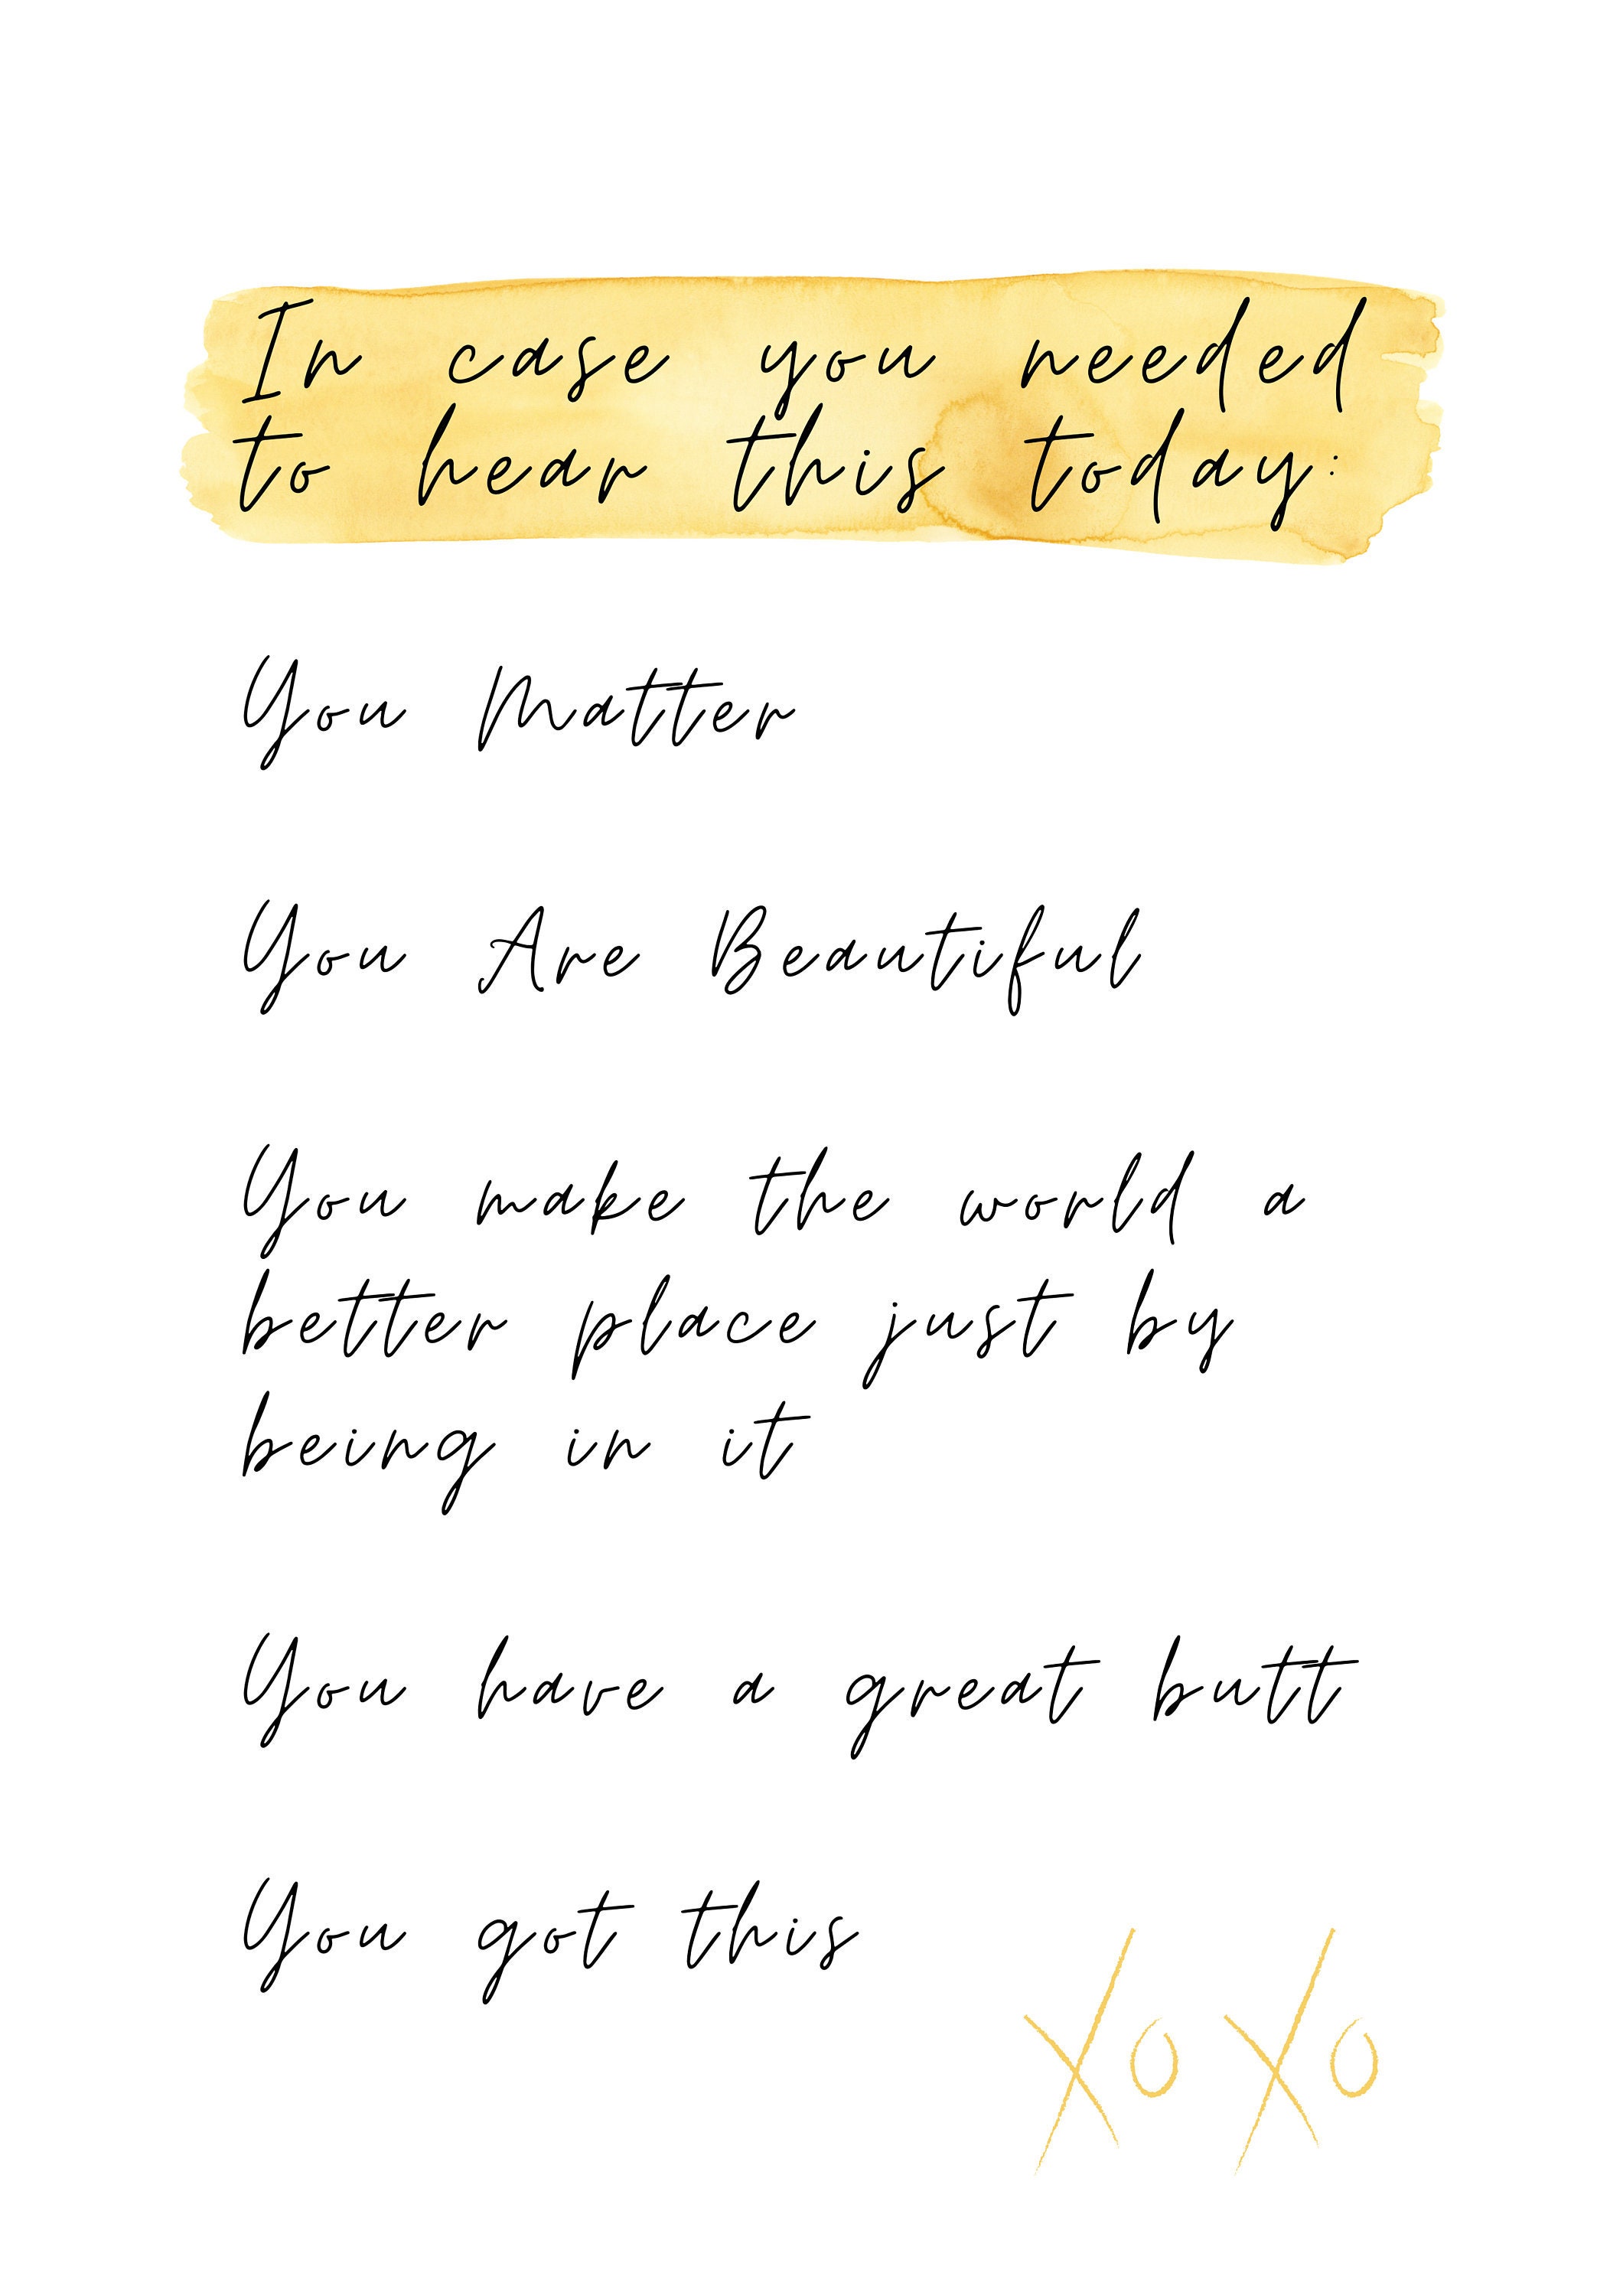 In case you needed
to hear this today:
You Matter
You Are Beautiful
You make the world a
better place just by
being in it
You have a great butt
You got this
XOXO